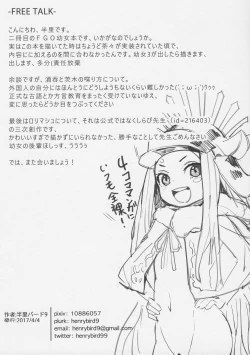 -FREE TALK-
こんにちわ、半里です。
二冊目のFGO幼女本です、いかがなのでしょうか。
実はこの本を描いてた時はちょうど茶々が実装されていた頃で、
内容に加えるのを間に合わなかったです。幼女3が出したら描きます、
出します、多分(責任放棄
余談ですが、酒呑と茨木の喋り方について。
外国人の自分にはほんとうにどうしようもないくらい難しかった(´;ω;`)ｳｩｩ
正式な古語とか方言教育をまったく受けていないゆえ、
変に思ったらどうか目をつぶってください
最後はロリマシュについて、それは公式ではなくしらび先生（id=216403)
の三次創作です、
かわいすぎで描かずにいられなかった、勝手なことして先生ごめんなさい
幼女の後輩ほしっす、ほちぃ
では、また会いましょう！
4コマが
いつも全裸！
作者:半里バード9
発行:2017/4/4
pixiv: 10886057
plurk: henrybird9
email: henrybird9@hotmail.com
twitter: henrybird99